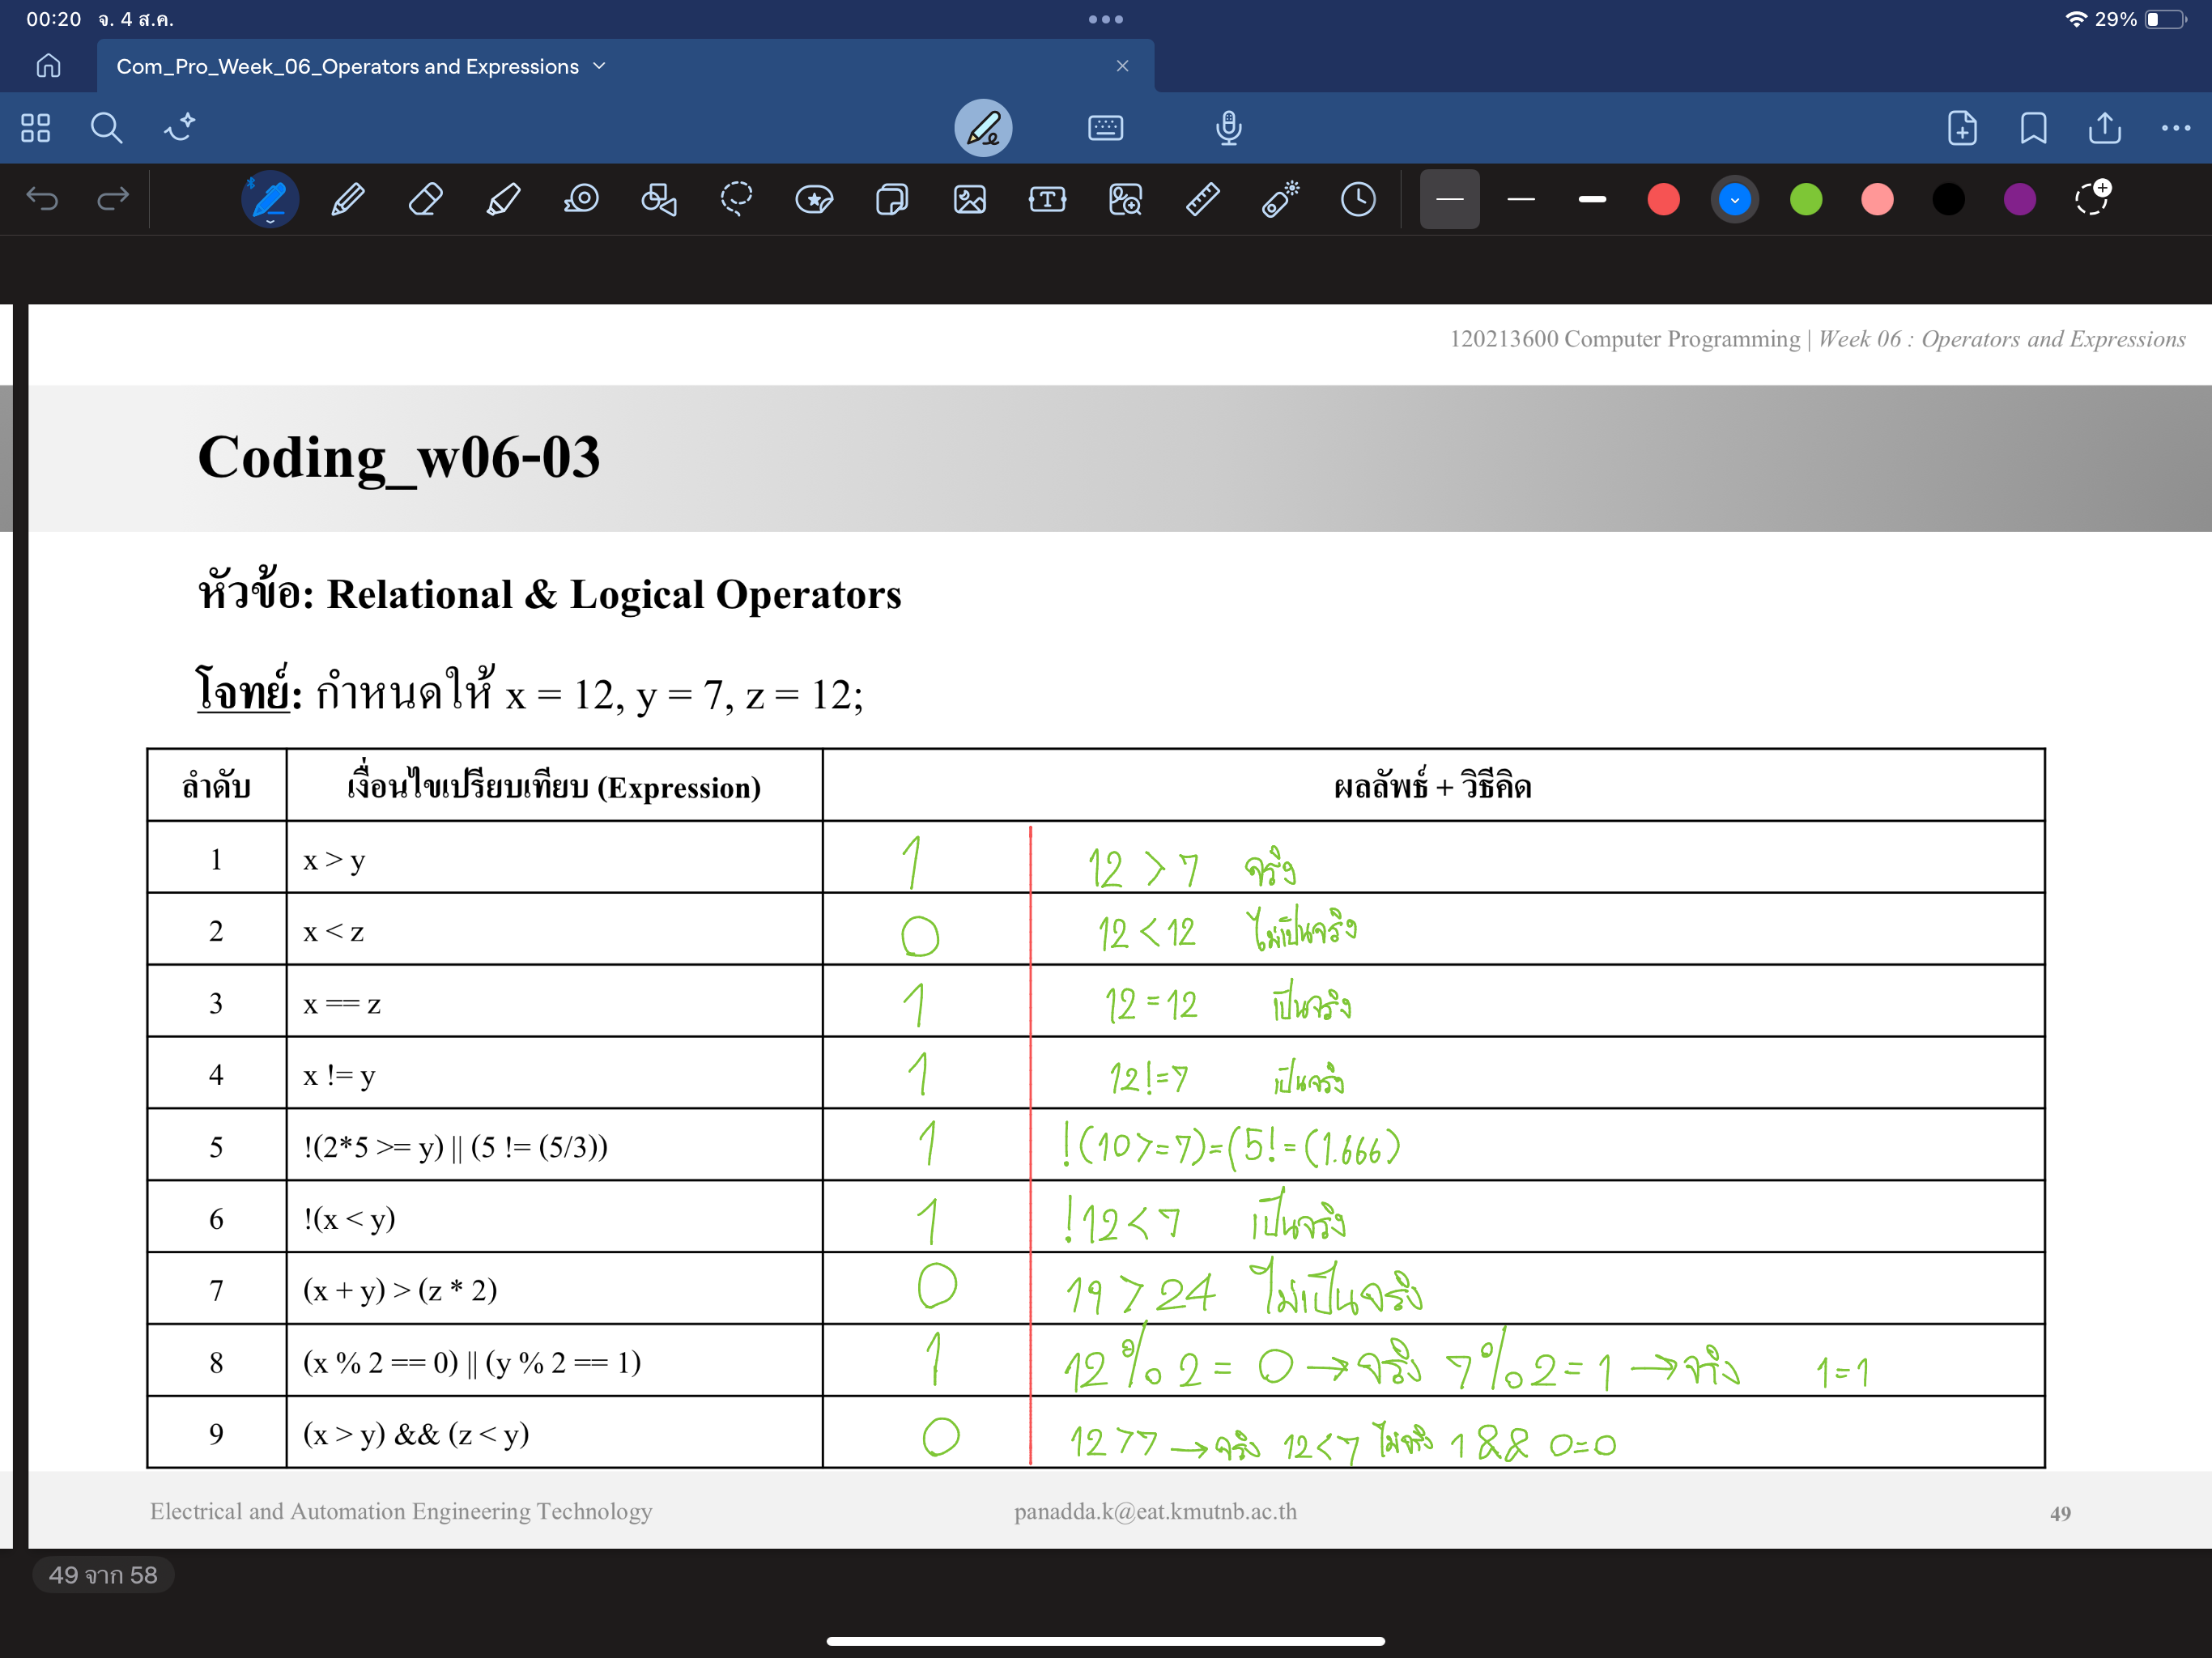 00:20 จ. 4 ส.ค.
29%
Com_Pro_Week_06_Operators and Expressions
120213600 Computer Programming | Week 06 : Operators and Expressions
Coding_w06-03
หัวข้อ: Relational & Logical Operators
โจทย์: กำหนดให้ x = 12, y = 7, z = 12;
ลำดับ เงื่อนไขเปรียบเทียบ (Expression) ผลลัพธ์ + วิธีคิด
1 x > y 1 12 > 7 จริง
2 x < z 0 12 < 12 ไม่เป็นจริง
3 x == z 1 12 = 12 เป็นจริง
4 x != y 1 12!=7 เป็นจริง
5 !(2*5 >= y) || (5 != (5/3)) 1 !(10>=7)=(5!=(1.666)
6 !(x < y) 1 !12<7 เป็นจริง
7 (x + y) > (z * 2) 0 19 > 24 ไม่เป็นจริง
8 (x % 2 == 0) || (y % 2 == 1) 1 12 % 2 = 0 → จริง 7 % 2 = 1 → จริง 1=1
9 (x > y) && (z < y) 0 12 >7 → จริง 12<7 ไม่จริง 1 && 0=0
Electrical and Automation Engineering Technology panadda.k@eat.kmutnb.ac.th 49
49 จาก 58